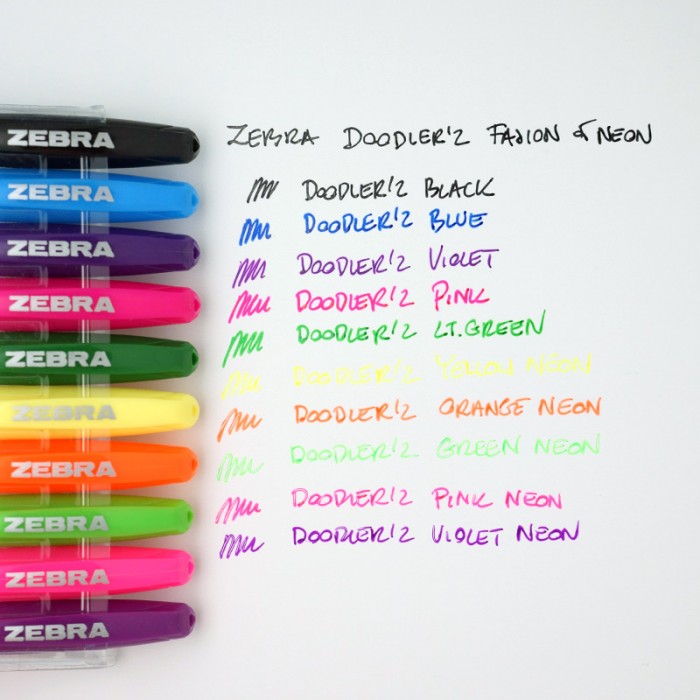 ZEBRA DOODLER'Z FASION & NEON
ZEBRA
DOODLER'Z BLACK
ZEBRA
DOODLER'Z BLUE
ZEBRA
DOODLER'Z VIOLET
ZEBRA
DOODLER'Z PINK
ZEBRA
DOODLER'Z LT.GREEN
ZEBRA
DOODLER'Z YELLOW NEON
ZEBRA
DOODLER'Z ORANGE NEON
ZEBRA
DOODLER'Z GREEN NEON
ZEBRA
DOODLER'Z PINK NEON
ZEBRA
DOODLER'Z VIOLET NEON
ZEBRA